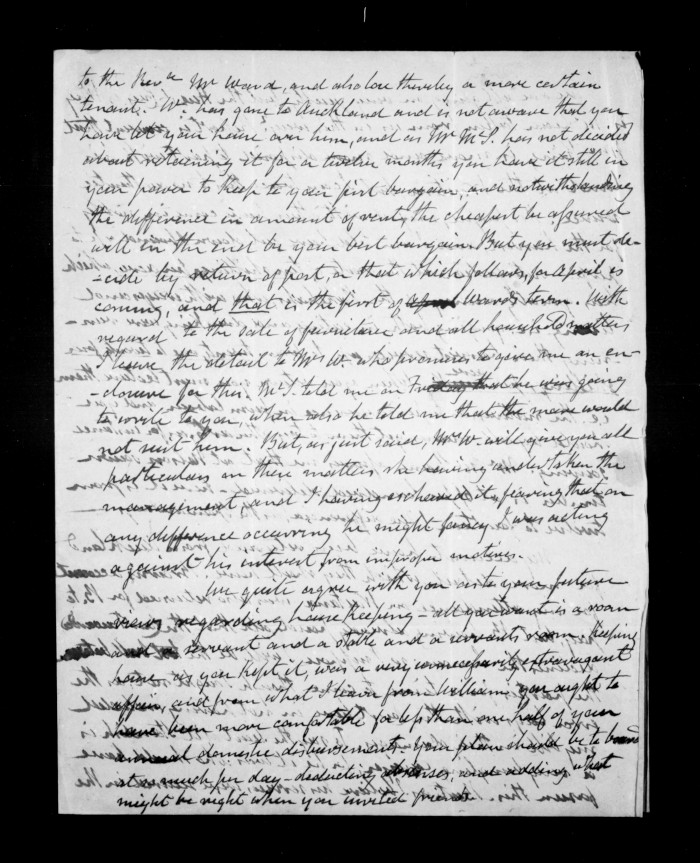 to the Revd. Mr Ward, and also lose thereby a more certain
tenant. W. has gone to Auckland and is not aware that you
have let your house over him, and as Mr McS. has not decided
about retaining it for a twelve months you have it still in
your power to keep to your first bargain, and notwithstanding
the difference in amount of rent, the cheapest be assured
will in the end be your best bargain. But you must de-
-cide by return of post, or that which follows, for April is
coming, and that is the first of April Ward's term. With
regard to the sale of furniture and all household matters
I leave the detail to Mrs W. who promises to give me an en-
-closure for this. McS. told me on Friday that he was going
to write to you, when also he told me that the mare would
not suit him. But, as just said, Mrs W. will give you all
particulars on these matters she having undertaken the
management, and I having eschewed it, fearing that on
any difference occurring he might fancy I was acting
against his interest from improper motives.
We quite agree with you in your future
views regarding house keeping - all you want is a room
and a servant and a stable and a servants room. Keeping
house, as you kept it, was a very unnecessarily extravagant
affair, and from what I learn from William, you ought to
have been more comfortable for less than one half of your
annual domestic disbursements. Your plan should be to board
at so much per day - deducting absences, and adding what
might be right when you invited friends.